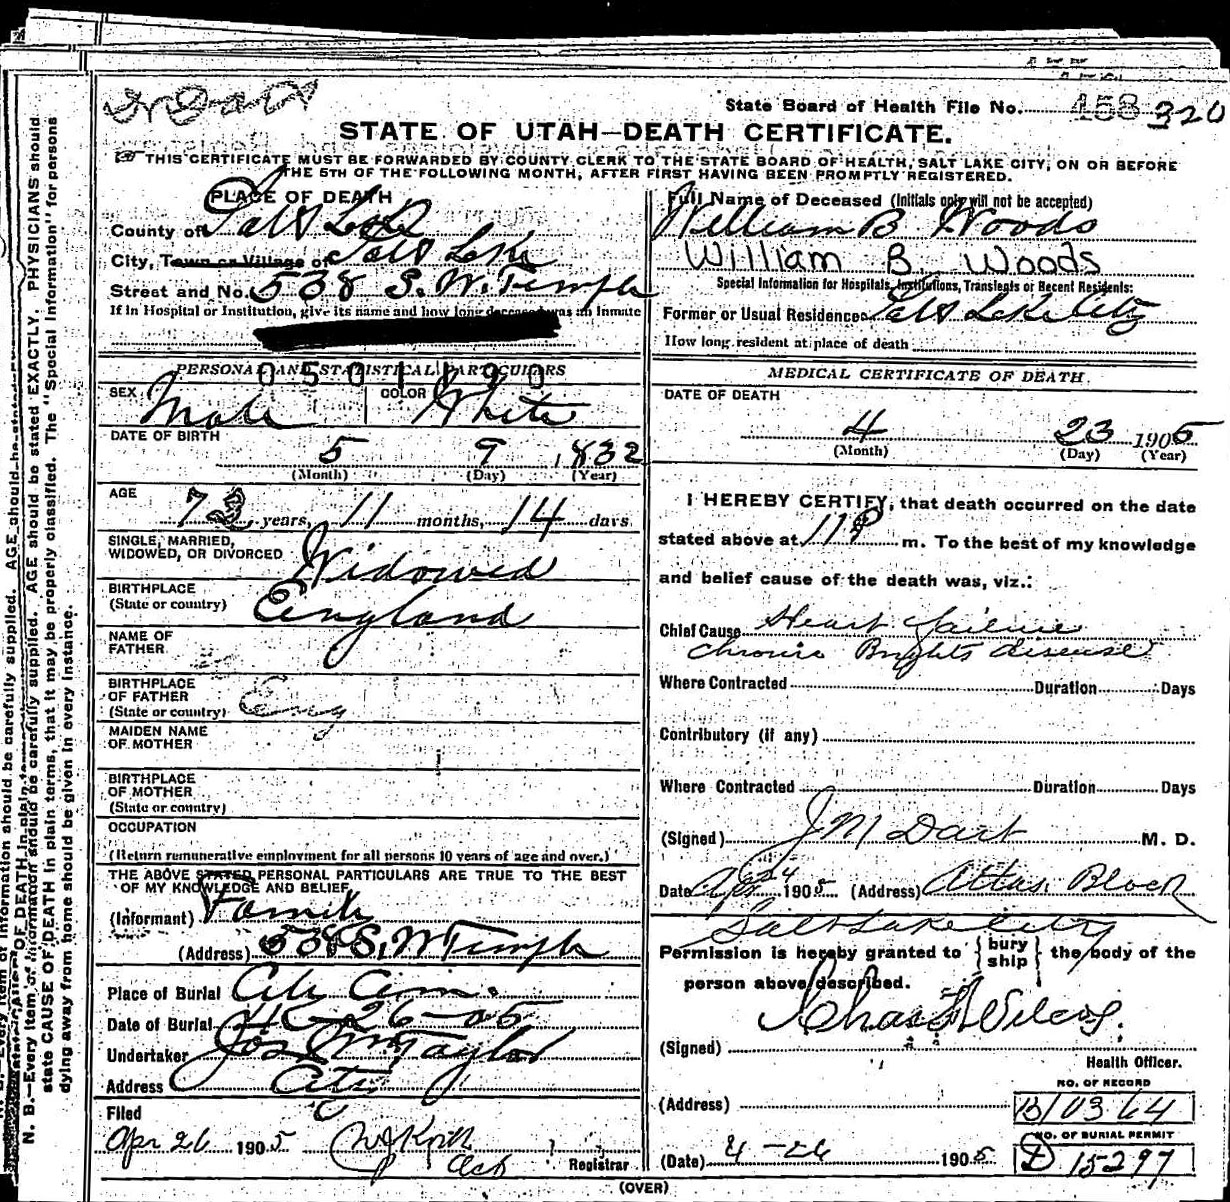 State Board of Health File No. 158 320
STATE OF UTAH—DEATH CERTIFICATE.
THIS CERTIFICATE MUST BE FORWARDED BY COUNTY CLERK TO THE STATE BOARD OF HEALTH, SALT LAKE CITY, ON OR BEFORE
THE 5TH OF THE FOLLOWING MONTH, AFTER FIRST HAVING BEEN PROMPTLY REGISTERED.
PLACE OF DEATH
County of Salt Lake
City, Town or Village of Salt Lake
Street and No. 538 S. W. Temple
If in Hospital or Institution, give its name and how long deceased was an Inmate
0501190
PERSONAL AND STATISTICAL PARTICULARS
SEX Male COLOR White
DATE OF BIRTH
5 9 1832
(Month) (Day) (Year)
AGE
73 years, 11 months, 14 days
SINGLE, MARRIED,
WIDOWED, OR DIVORCED Widowed
BIRTHPLACE
(State or country) England
NAME OF
FATHER
BIRTHPLACE
OF FATHER
(State or country) Eng
MAIDEN NAME
OF MOTHER
BIRTHPLACE
OF MOTHER
(State or country)
OCCUPATION
(Return remunerative employment for all persons 10 years of age and over.)
THE ABOVE STATED PERSONAL PARTICULARS ARE TRUE TO THE BEST
OF MY KNOWLEDGE AND BELIEF.
(Informant) Family
(Address) 538 S. W Temple
Place of Burial City Cem.
Date of Burial 4-26-05
Undertaker Jos Wm Taylor
Address City
Filed
Apr 26 1905
Registrar
Full Name of Deceased (Initials only will not be accepted)
William B Woods
William B. Woods
Special Information for Hospitals, Institutions, Transients or Recent Residents:
Former or Usual Residence Salt Lake City
How long resident at place of death
MEDICAL CERTIFICATE OF DEATH
DATE OF DEATH
4 23 1905
(Month) (Day) (Year)
I HEREBY CERTIFY, that death occurred on the date
stated above at 11 P m. To the best of my knowledge
and belief cause of the death was, viz.:
Chief Cause Heart failure
Chronic Brights disease
Where Contracted Duration Days
Contributory (if any)
Where Contracted Duration Days
(Signed) J M Dart M. D.
Date Apr 24 1905 (Address) Atlas Block
Salt Lake City
Permission is hereby granted to { bury ship } the body of the
person above described.
Chas F Wilcox.
(Signed)
Health Officer.
(Address)
NO. OF RECORD
B/0364
NO. OF BURIAL PERMIT
D 15297
(Date) 4-26 1905
(OVER)
N. B.—Every item of information should be carefully supplied. AGE should be stated EXACTLY. PHYSICIANS should
state CAUSE OF DEATH in plain terms, that it may be properly classified. The "Special Information" for persons
dying away from home should be given in every instance.